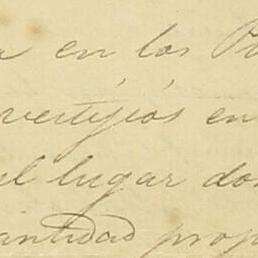 en los
vertijios en
el lugar don
antidad prop